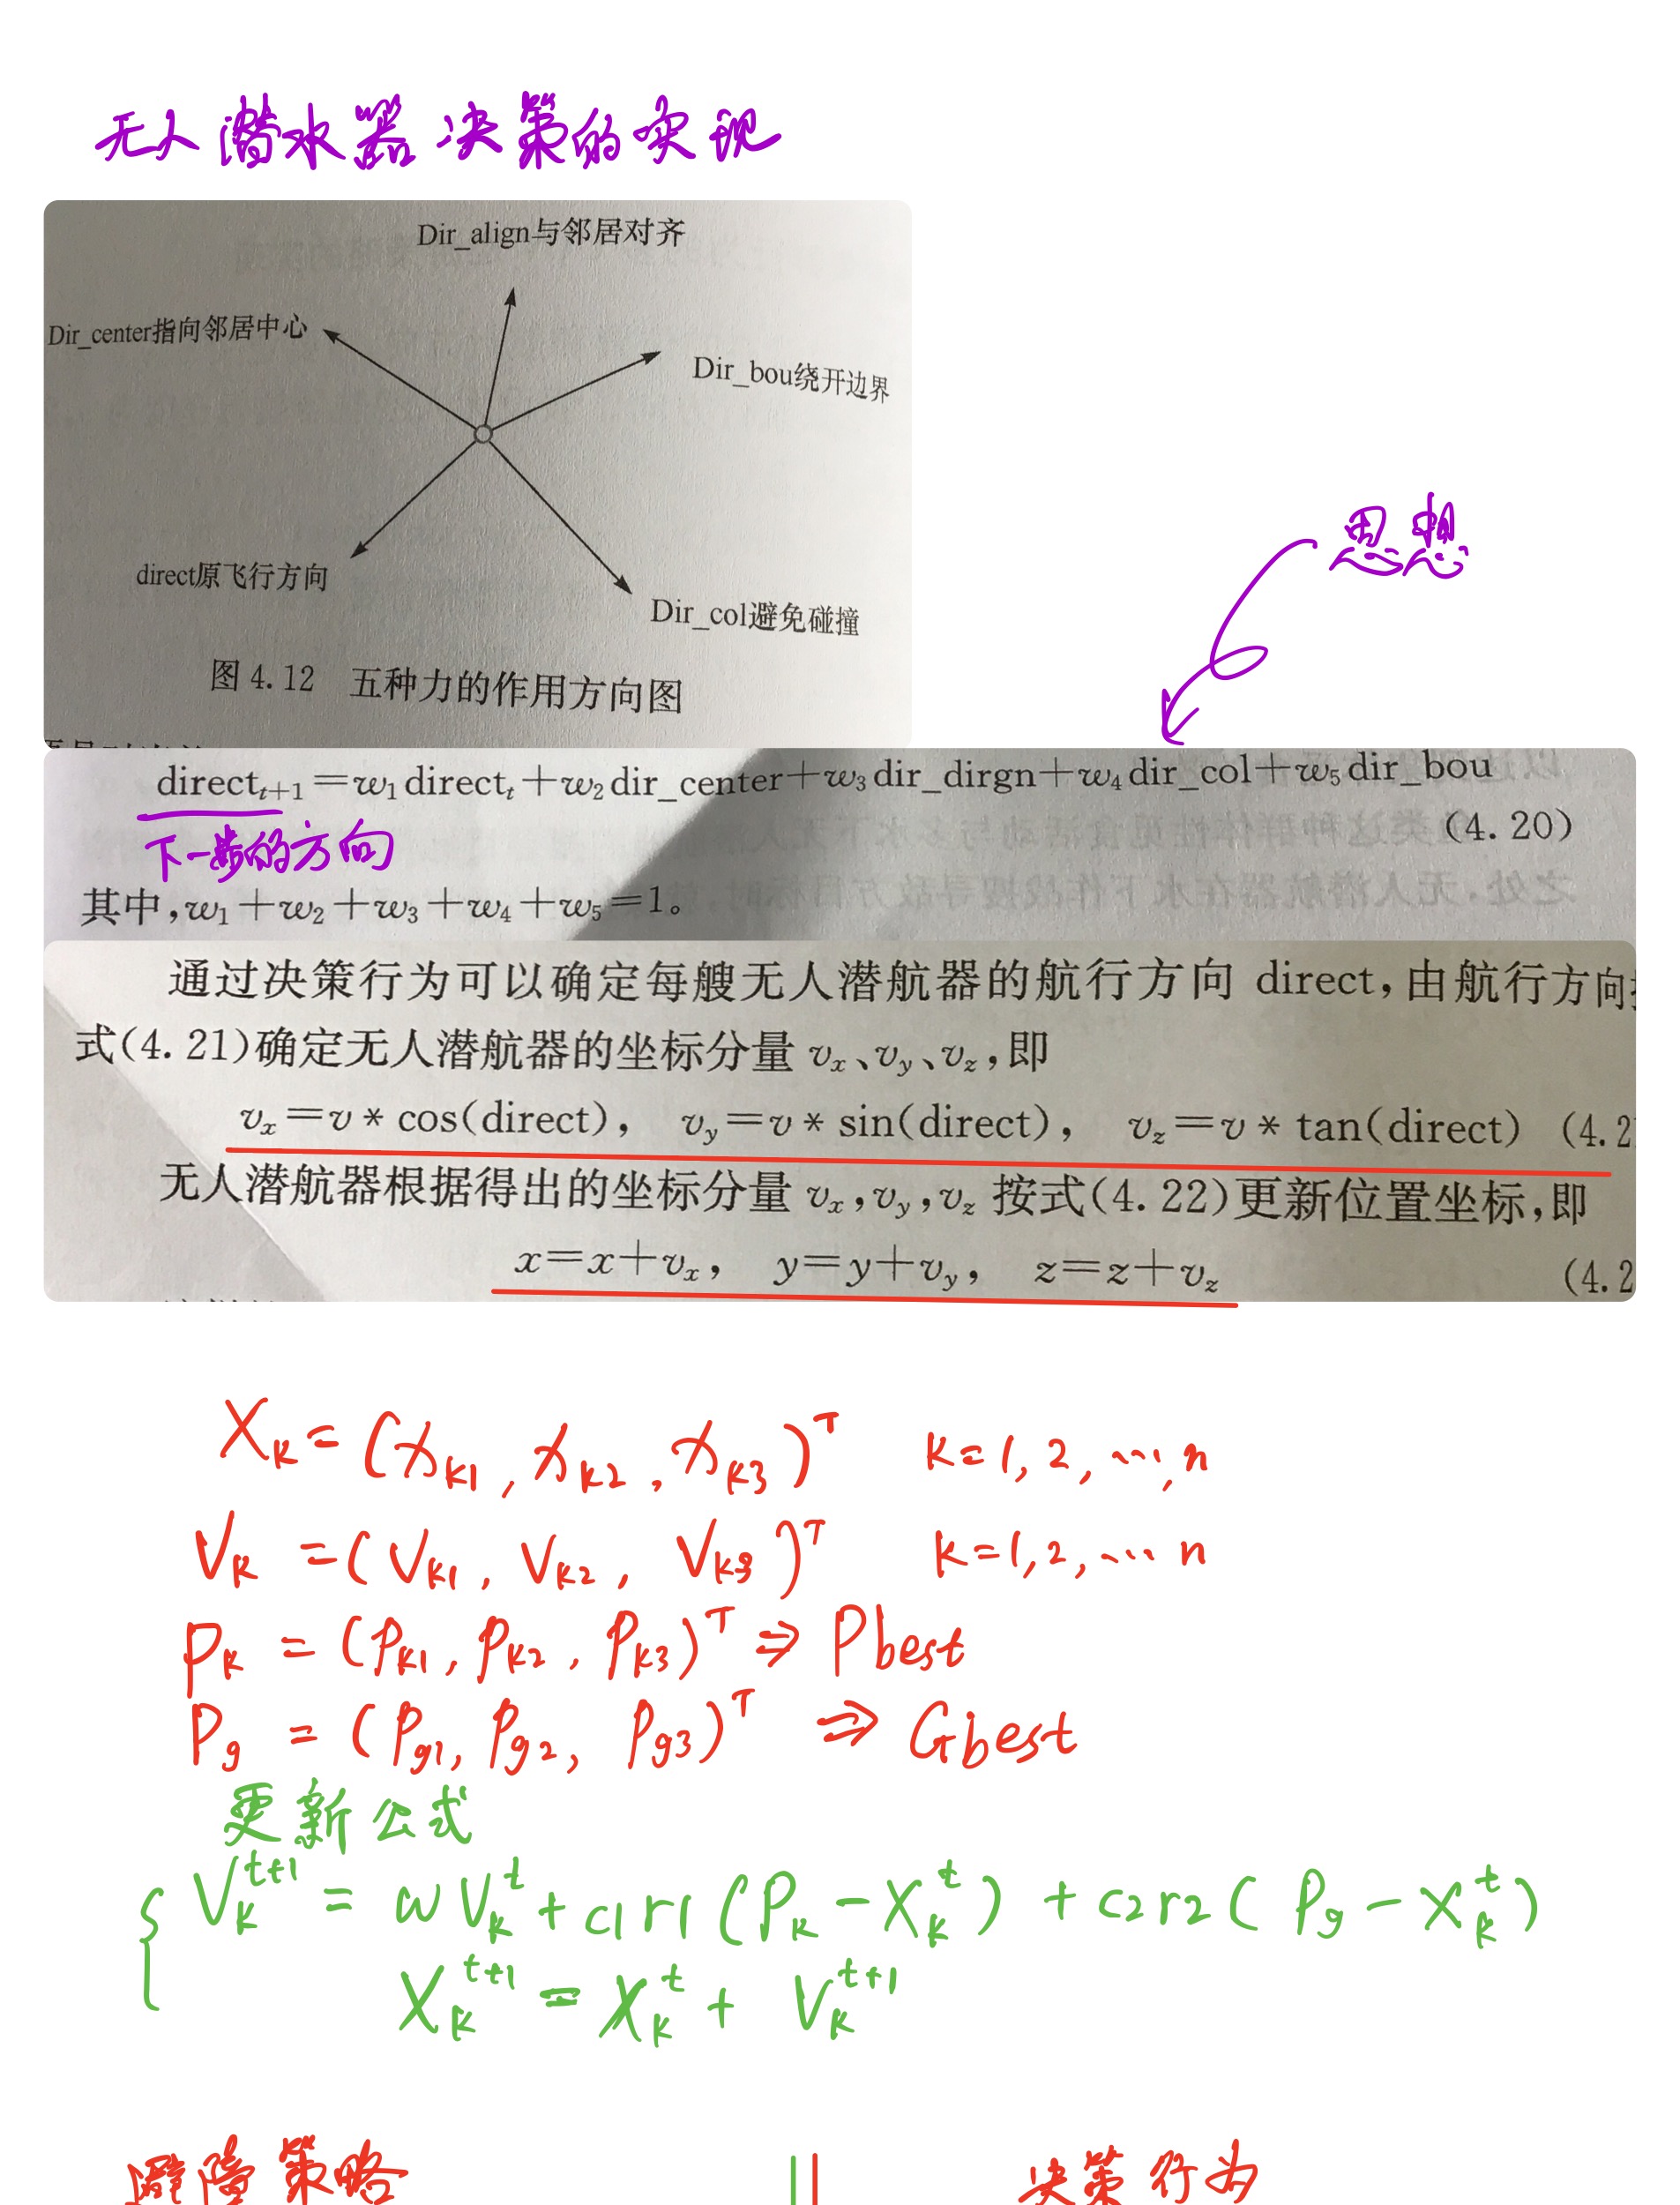 无人潜水器决策的实现
Dir_align与邻居对齐
Dir_center指向邻居中心
Dir_bou绕开边界
direct原飞行方向
Dir_col避免碰撞
图 4.12 五种力的作用方向图
思想
direct_{t+1}=w_1 direct_t+w_2 dir_center+w_3 dir_dirgn+w_4 dir_col+w_5 dir_bou
(4.20)
下一步的方向
其中,w_1+w_2+w_3+w_4+w_5=1。
通过决策行为可以确定每艘无人潜航器的航行方向 direct,由航行方向
式(4.21)确定无人潜航器的坐标分量 v_x、v_y、v_z,即
v_x=v*cos(direct), v_y=v*sin(direct), v_z=v*tan(direct) (4.2
无人潜航器根据得出的坐标分量 v_x,v_y,v_z 按式(4.22)更新位置坐标,即
x=x+v_x, y=y+v_y, z=z+v_z (4.2
X_k=(x_{k1}, x_{k2}, x_{k3})^T k=1,2,…,n
V_k=(V_{k1}, V_{k2}, V_{k3})^T k=1,2,…n
P_k=(P_{k1}, P_{k2}, P_{k3})^T ⇒ Pbest
P_g=(P_{g1}, P_{g2}, P_{g3})^T ⇒ Gbest
更新公式
V_k^{t+1}=wV_k^t+c1r1(P_k-X_k^t)+c2r2(P_g-X_k^t)
X_k^{t+1}=X_k^t+V_k^{t+1}
避障策略 决策行为